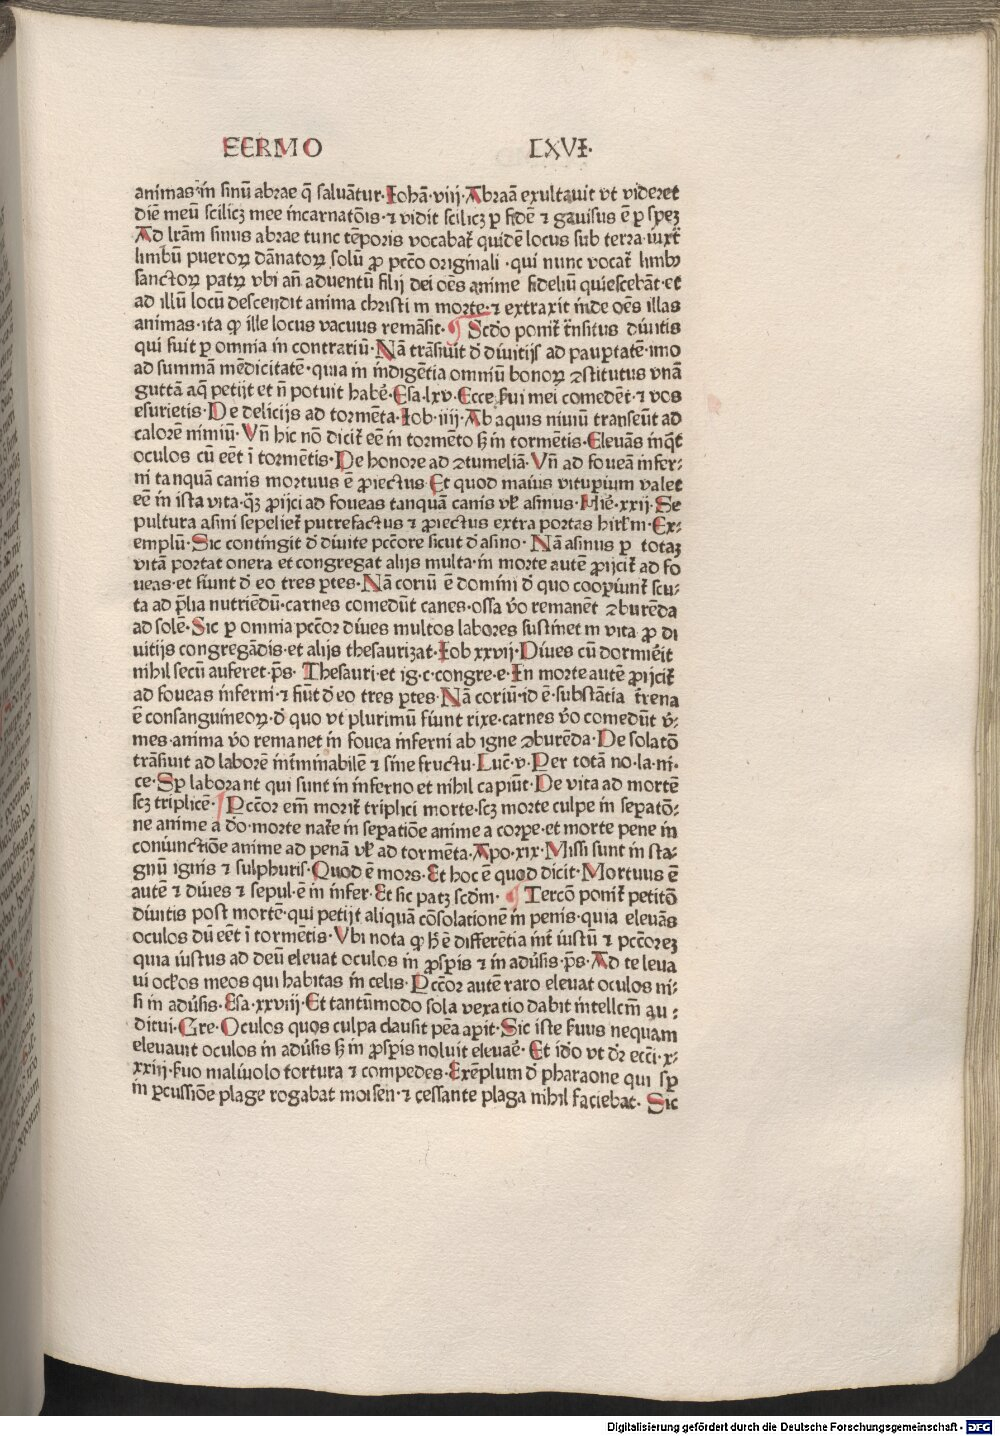 EERMO CXVI·
animas in sinū abrae q̄ saluātur· Iohā·viij· Abraā exultauit vt videret
diē meū scilicꝫ mee incarnatōis·⁊ vidit scilicꝫ ꝑ fidē ⁊ gauisus ē ꝑ speꝫ
Ad lr̄am sinus abrae tunc tēporis vocabat᷑ quidē locus sub terra iuxt᷑
limbū pueroꝝ dānatoꝝ solū ꝓ pctō originali ·qui nunc vocat᷑ limbꝰ
sanctoꝝ patꝝ vbi an̄ aduentū filij dei oēs anime fideliū quiescebāt·et
ad illū locū descendit anima christi in morte·⁊ extraxit inde oēs illas
animas·ita ꝙ ille locus vacuus remāsit· ¶ Scdō ponit᷑ trāsitus diuitis
qui fuit ꝑ omnia in contrariū· Nā trāsiuit d̄ diuitijs ad pauꝑtatē·imo
ad summā mēdicitatē·quia in indigētia omniū bonoꝝ ꝯstitutus vnā
guttā aq̄ petijt et n̄ potuit habē· Esa·lxv· Ecce s̄ui mei comedēt·⁊ vos
esurietis· De delicijs ad tormēta· Iob·iiij· Ab aquis niuiū transeūt ad
calorē nimiū· Vn̄ hic nō dicit᷑ eē in tormēto sꝫ in tormētis· Eleuās inq̄t
oculos cū eēt ī tormētis· De honore ad ꝯtumeliā· Vn̄ ad foueā infer⸗
ni tanquā canis mortuus ē ꝓiectus· Et quod maius vituꝑium valet
eē in ista vita·q̄ꝫ ꝓijci ad foueas tanquā canis vl᷑ asinus· Hiē·xxij· Se
pultura asini sepeliet᷑ putrefactus ⁊ ꝓiectus extra portas hirlm̄· Ex⸗
emplū· Sic contingit d̄ diuite pctōre sicut d̄ asino· Nā asinus ꝑ totaꝫ
vitā portat onera et congregat alijs multa·in morte autē ꝓijcit᷑ ad fo
ueas·et fiunt d̄ eo tres ꝑtes· Nā coriū ē domini d̄ quo cooꝑiunt᷑ scu⸗
ta ad p̄lia nutriēdū·carnes comedūt canes·ossa v̄o remanēt ꝯburēda
ad solē· Sic ꝑ omnia pctōr diues multos labores sustinet in vita ꝓ di
uitijs congregādis·et alijs thesaurizat· Iob xxvij· Diues cū dormiēit
nihil secū auferet·p̄s· Thesauri·et ig·c·congre·e· In morte autē ꝓijcit᷑
ad foueas inferni·⁊ fiūt d̄ eo tres ꝑtes· Nā coriū·id ē·substātia t̄rena
ē consanguineoꝝ·d̄ quo vt plurimū fiunt rixe·carnes v̄o comedūt v̄⸗
mes·anima v̄o remanet in fouea inferni ab igne ꝯburēda· De solatō
trāsiuit ad laborē int̄minabilē ⁊ sine fructu· Luc̄·v· Per totā no·la·ni⸗
ce· Sꝑ laborant qui sunt in inferno et nihil capiūt· De vita ad mortē
scꝫ triplicē· ¶ Pctōr em̄ morit᷑ triplici morte·scꝫ morte culpe in seꝑatō⸗
ne anime a d̄o·morte nat᷑e in seꝑatiōe anime a corꝑe·et morte pene in
coniunctiōe anime ad penā vl᷑ ad tormēta· Apo·xix· Missi sunt in sta⸗
gnū ignis ⁊ sulphuris· Quod ē mors· Et hoc ē quod dicit· Mortuus ē
autē ⁊ diues ⁊ sepul·ē in infer· Et sic patꝫ scdm̄· ¶ Tercō ponit᷑ petitō
diuitis post mortē·qui petijt aliquā cōsolationē in penis·quia eleuās
oculos dū eēt ī tormētis· Vbi nota ꝙ h̄ ē differētia int̄ iustū ⁊ pctōreꝫ
quia iustus ad deū eleuat oculos in ꝓsꝑis ⁊ in adūsis·p̄s· Ad te leua
ui oc̄los meos qui habitas in celis· Pctōr autē raro eleuat oculos ni⸗
si in adūsis· Esa·xxviij· Et tantūmodo sola vexatio dabit intellcm̄ au⸗
ditui· Gre· Oculos quos culpa clausit pēa aꝑit· Sic iste s̄uus nequam
eleuauit oculos in adūsis sꝫ in ꝓsꝑis noluit eleuāe· Et iđo vt dr̄ ecci·x⸗
xxiij·s̄uo maliuolo tortura ⁊ compedes· Exēplum d̄ pharaone qui sꝑ
in ꝑcussiōe plage rogabat moisen·⁊ cessante plaga nihil faciebat· Sic
Digitalisierung gefördert durch die Deutsche Forschungsgemeinschaft - DFG